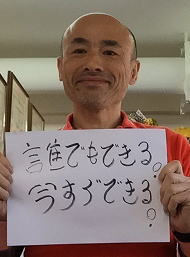 誰でもできる。
今すぐできる。